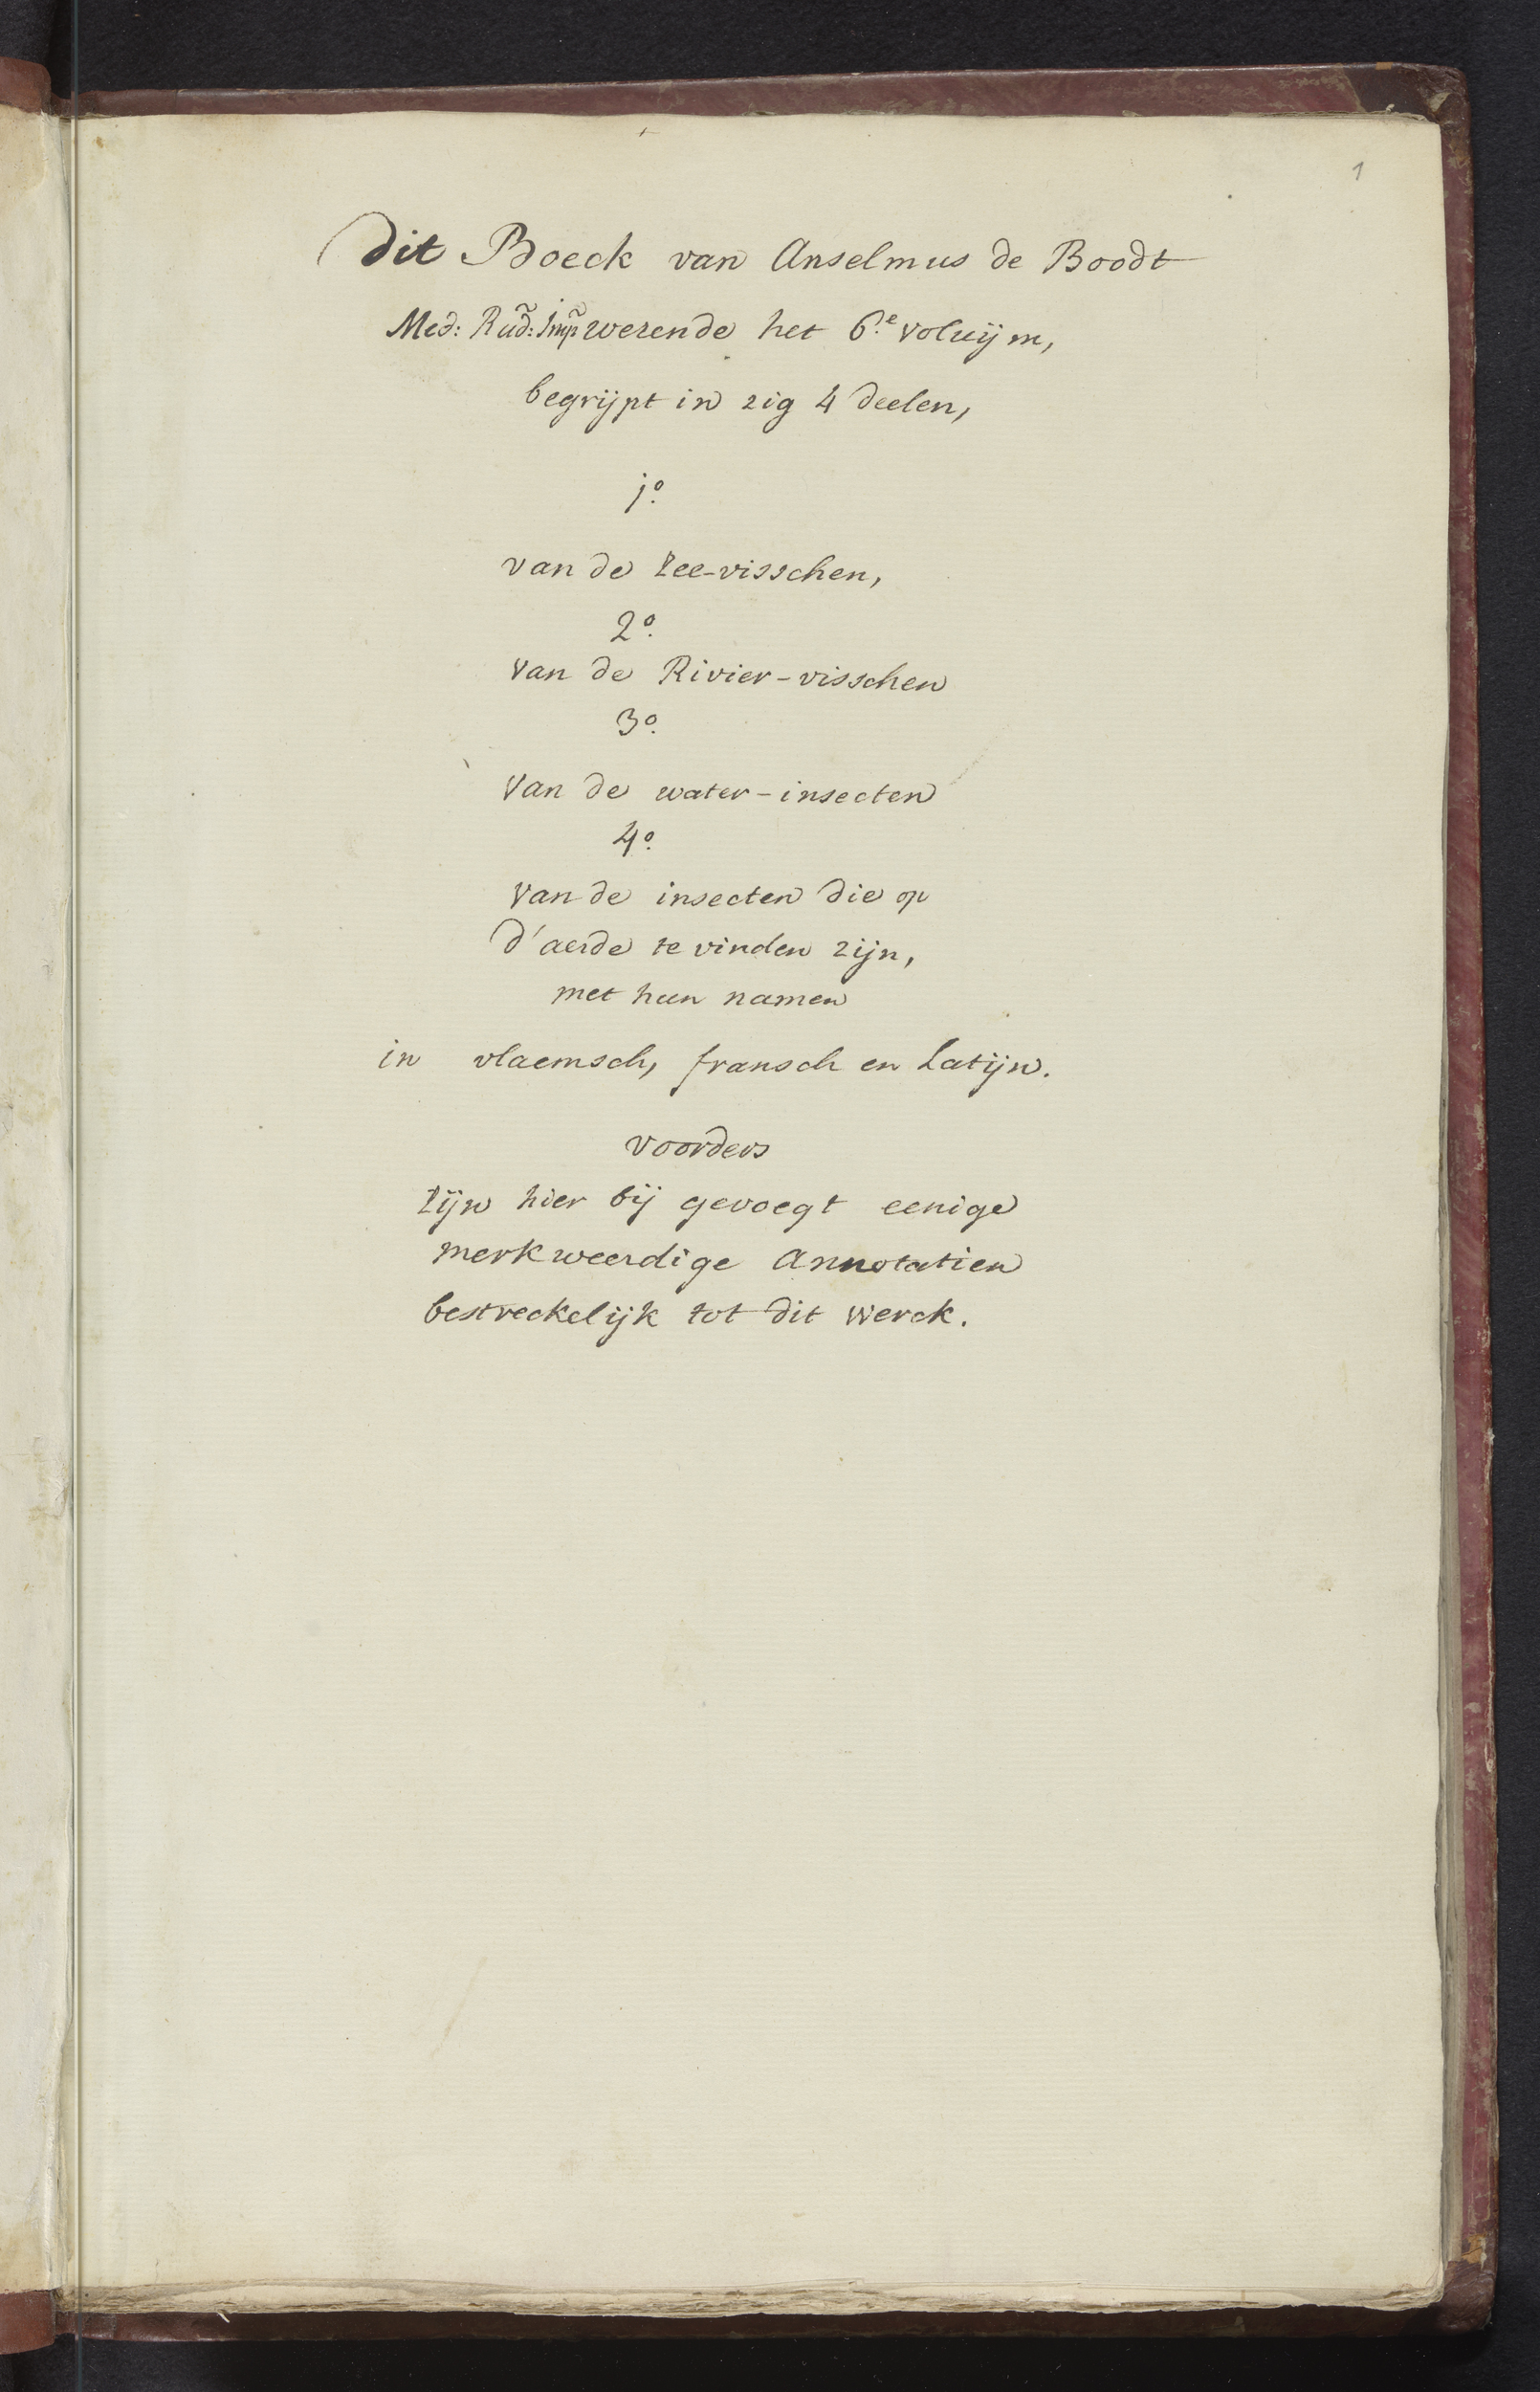 1
Dit Boeck van Anselmus de Boodt
Med: Rud̃: Imp̃ wezende het 6.e voluijm,
begrijpt in zig 4 deelen,
1.o
van de Zee-visschen,
2.o
van de Rivier-visschen
3.o
van de water-insecten
4.o
van de insecten die op
d'aerde te vinden zijn,
met hun namen
in vlaemsch, fransch en Latijn.
voorders
Zijn hier bij gevoegt eenige
merkweerdige Annotatien
bestreckelijk tot dit werck.